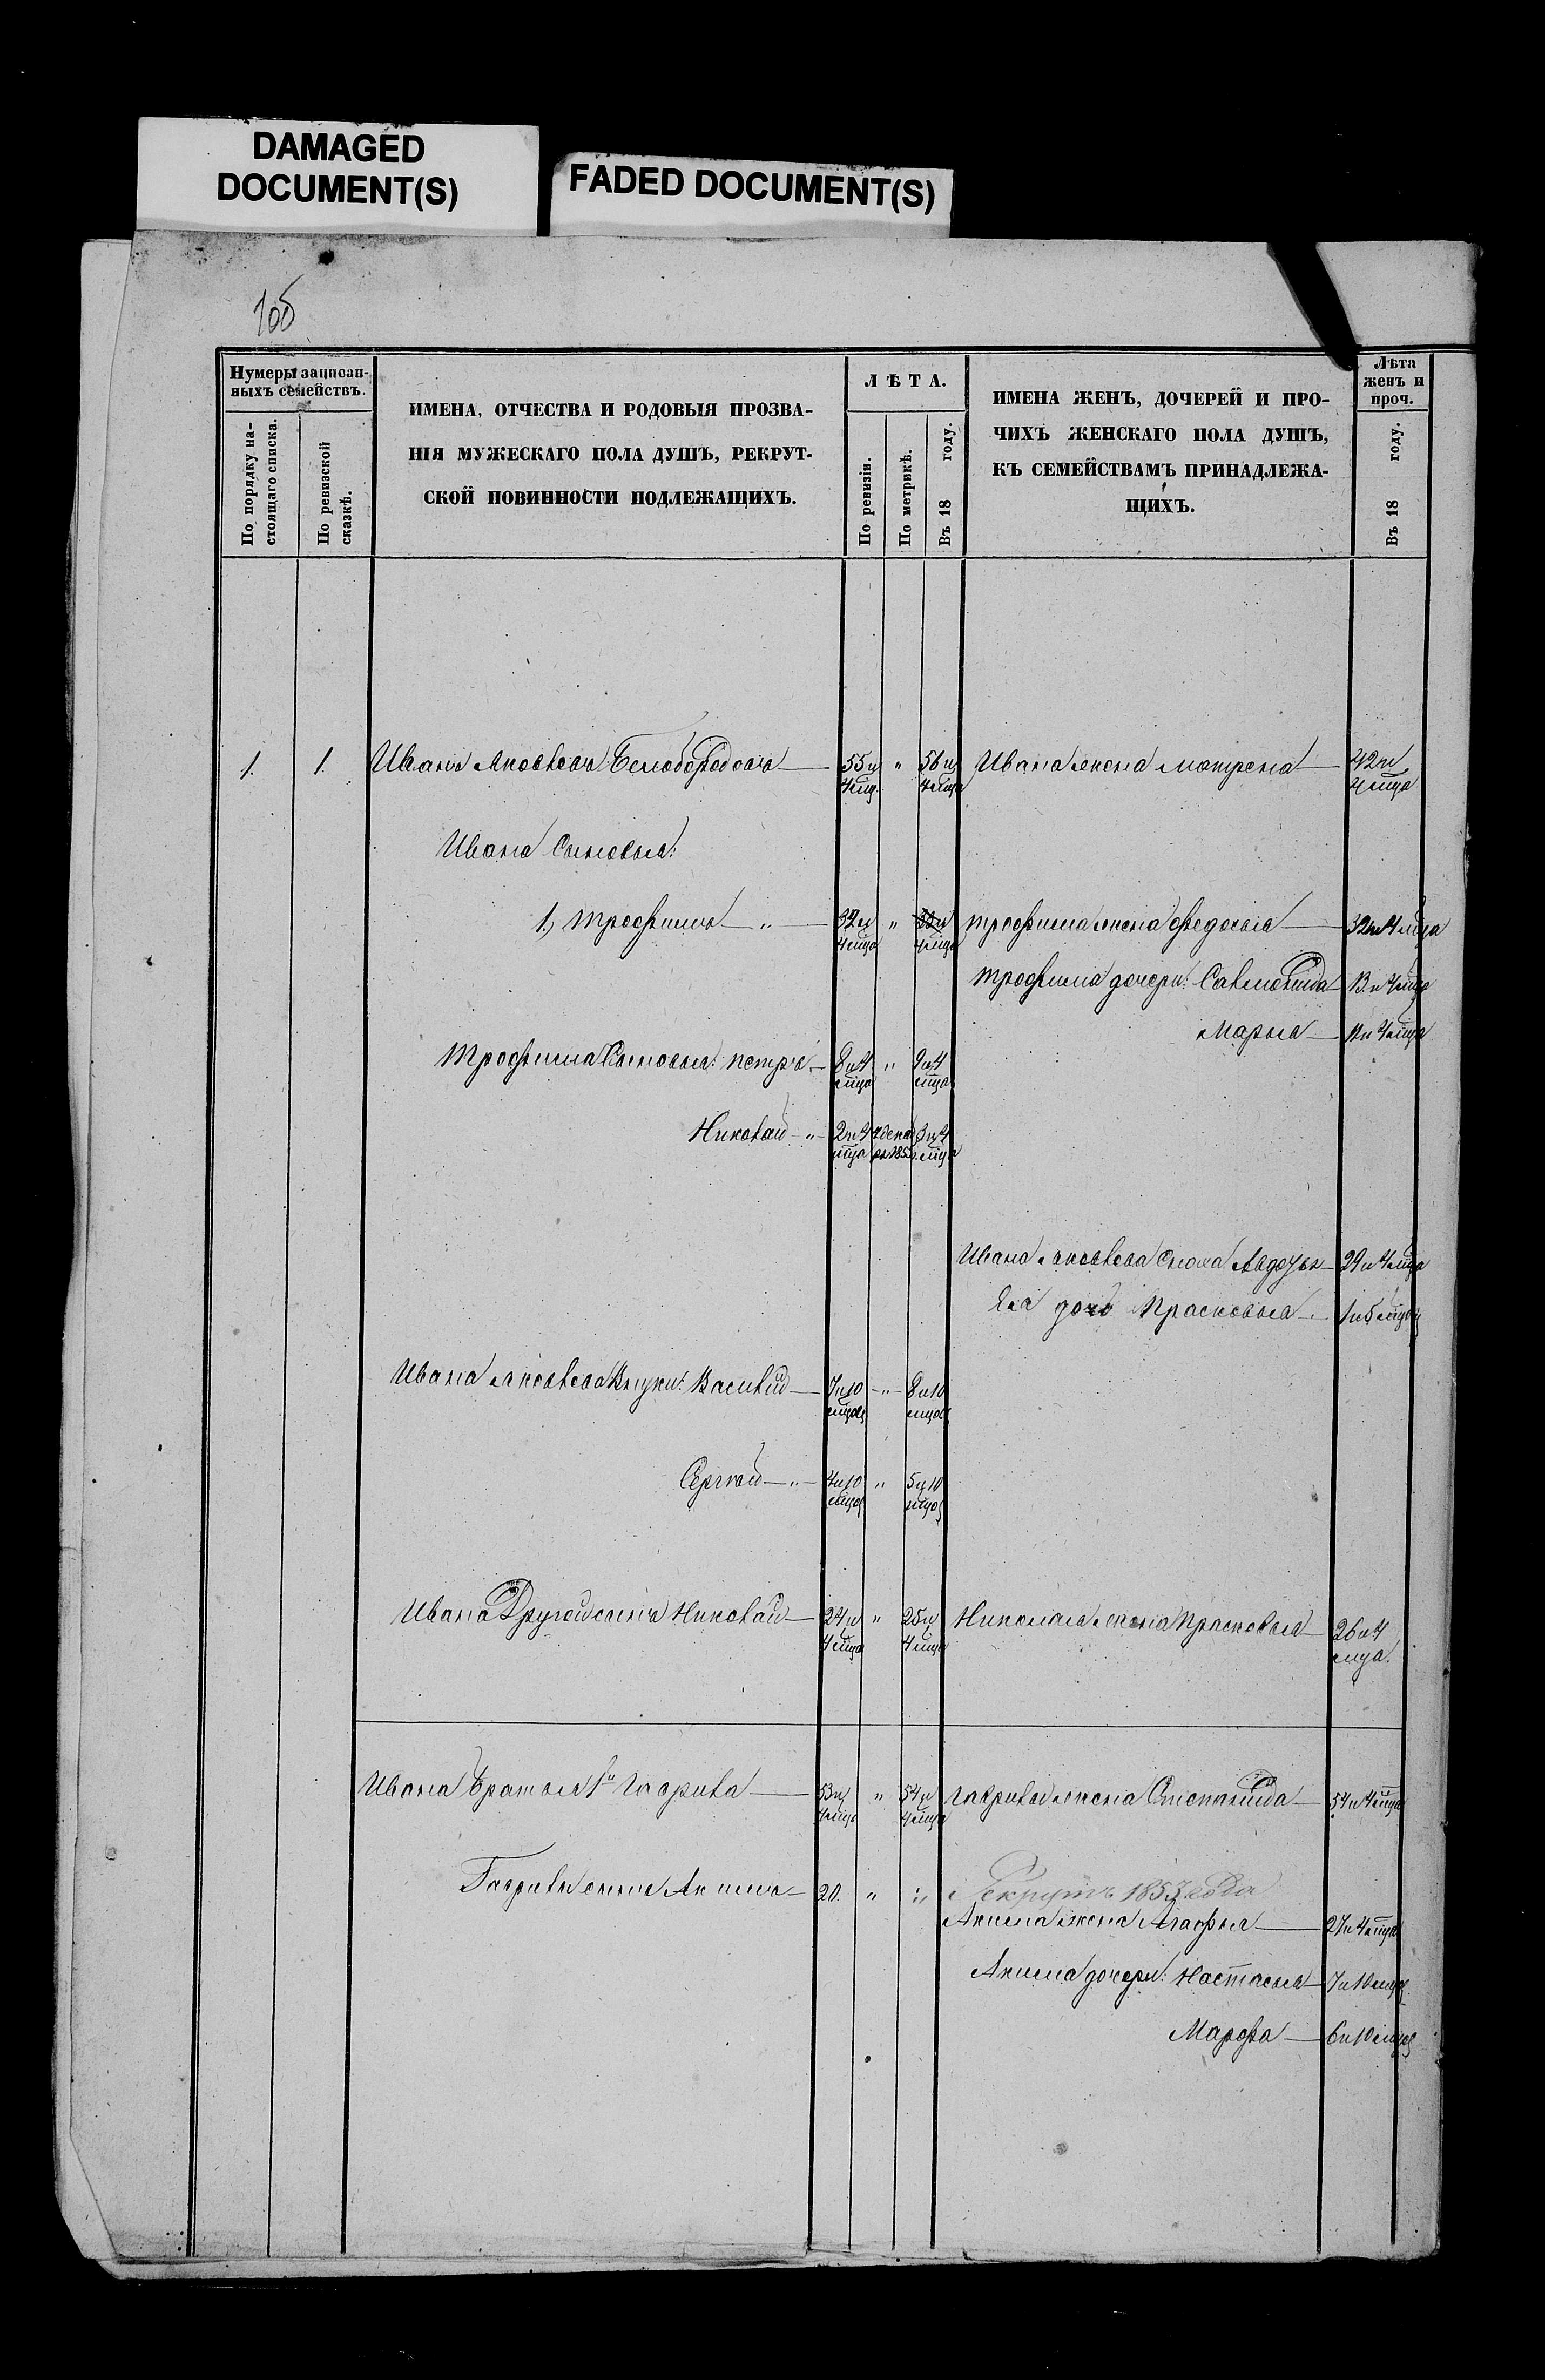 DAMAGED
DOCUMENT(S)
FADED DOCUMENT(S)
Нумеры записан-
ныхъ семействъ.
По порядку на-
стоящаго списка.
По ревизской
сказкѣ.
ИМЕНА, ОТЧЕСТВА И РОДОВЫЯ ПРОЗВА-
НІЯ МУЖЕСКАГО ПОЛА ДУШЪ, РЕКРУТ-
СКОЙ ПОВИННОСТИ ПОДЛЕЖАЩИХЪ.
ЛѢТА.
По ревизіи.
По метрикѣ.
Въ 18 году.
ИМЕНА ЖЕНЪ, ДОЧЕРЕЙ И ПРО-
ЧИХЪ ЖЕНСКАГО ПОЛА ДУШЪ,
КЪ СЕМЕЙСТВАМЪ ПРИНАДЛЕЖА-
ЩИХЪ.
Лѣта
женъ и
проч.
Въ 18 году.
1. 1. Иванъ Яковлевъ Белобородовъ 55 и 4 мца " 56 и 4 мца Ивана жена Матрена 42 и 4 мца
Ивана Сыновья:
1, Трофимъ " 32 и 4 мца " 33 и 4 мца Трофима жена Федосья 32 и 4 мца
Трофима дочери: Саломонида 13 и 4 мца
Марья 11 и 4 мца
Трофима Сыновья: Петръ 8 и 4 мца " 9 и 4 мца
Николай " 2 и 4 мца 3 и 4 мца
Ивана Яковлева Сноха Авдотья 29 и 4 мца
Ея дочь Прасковья 1 и 5 мцов
Ивана Яковлева Внуки: Василий 7 и 10 мцов " 8 и 10 мцов
Сергей " 4 и 10 мцов " 5 и 10 мцов
Ивана Другой сынъ Николай 24 и 4 мца " 25 и 4 мца Николая жена Прасковья 26 и 4 мца.
Ивана Братья 1й Гаврила 53 и 4 мца " 54 и 4 мца Гаврилы жена Степанида 54 и 4 мца
Гаврилы сынъ Акимъ 20. " " Рекрутъ 1853 года
Акима жена Агафья 27 и 4 мца
Акима дочери: Настасья 7 и 10 мцов
Марфа 6 и 10 мцов